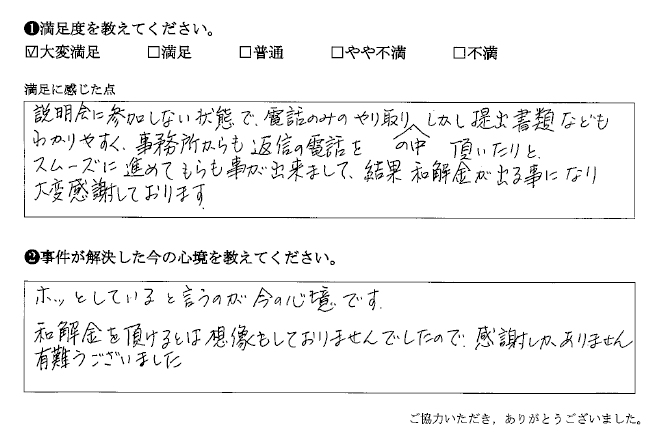 ❶満足度を教えてください。
☑大変満足 □満足 □普通 □やや不満 □不満
満足に感じた点
説明会に参加しない状態で、電話のみのやり取りの中 しかし提出書類なども
わかりやすく、事務所からも返信の電話を 頂いたりと、
スムーズに進めてもらう事が出来まして、結果 和解金が出る事になり
大変感謝しております
❷事件が解決した今の心境を教えてください。
ホッとしていると言うのが今の心境です.
和解金を頂けるとは想像もしておりませんでしたので、感謝しかありません
有難うございました
ご協力いただき，ありがとうございました。